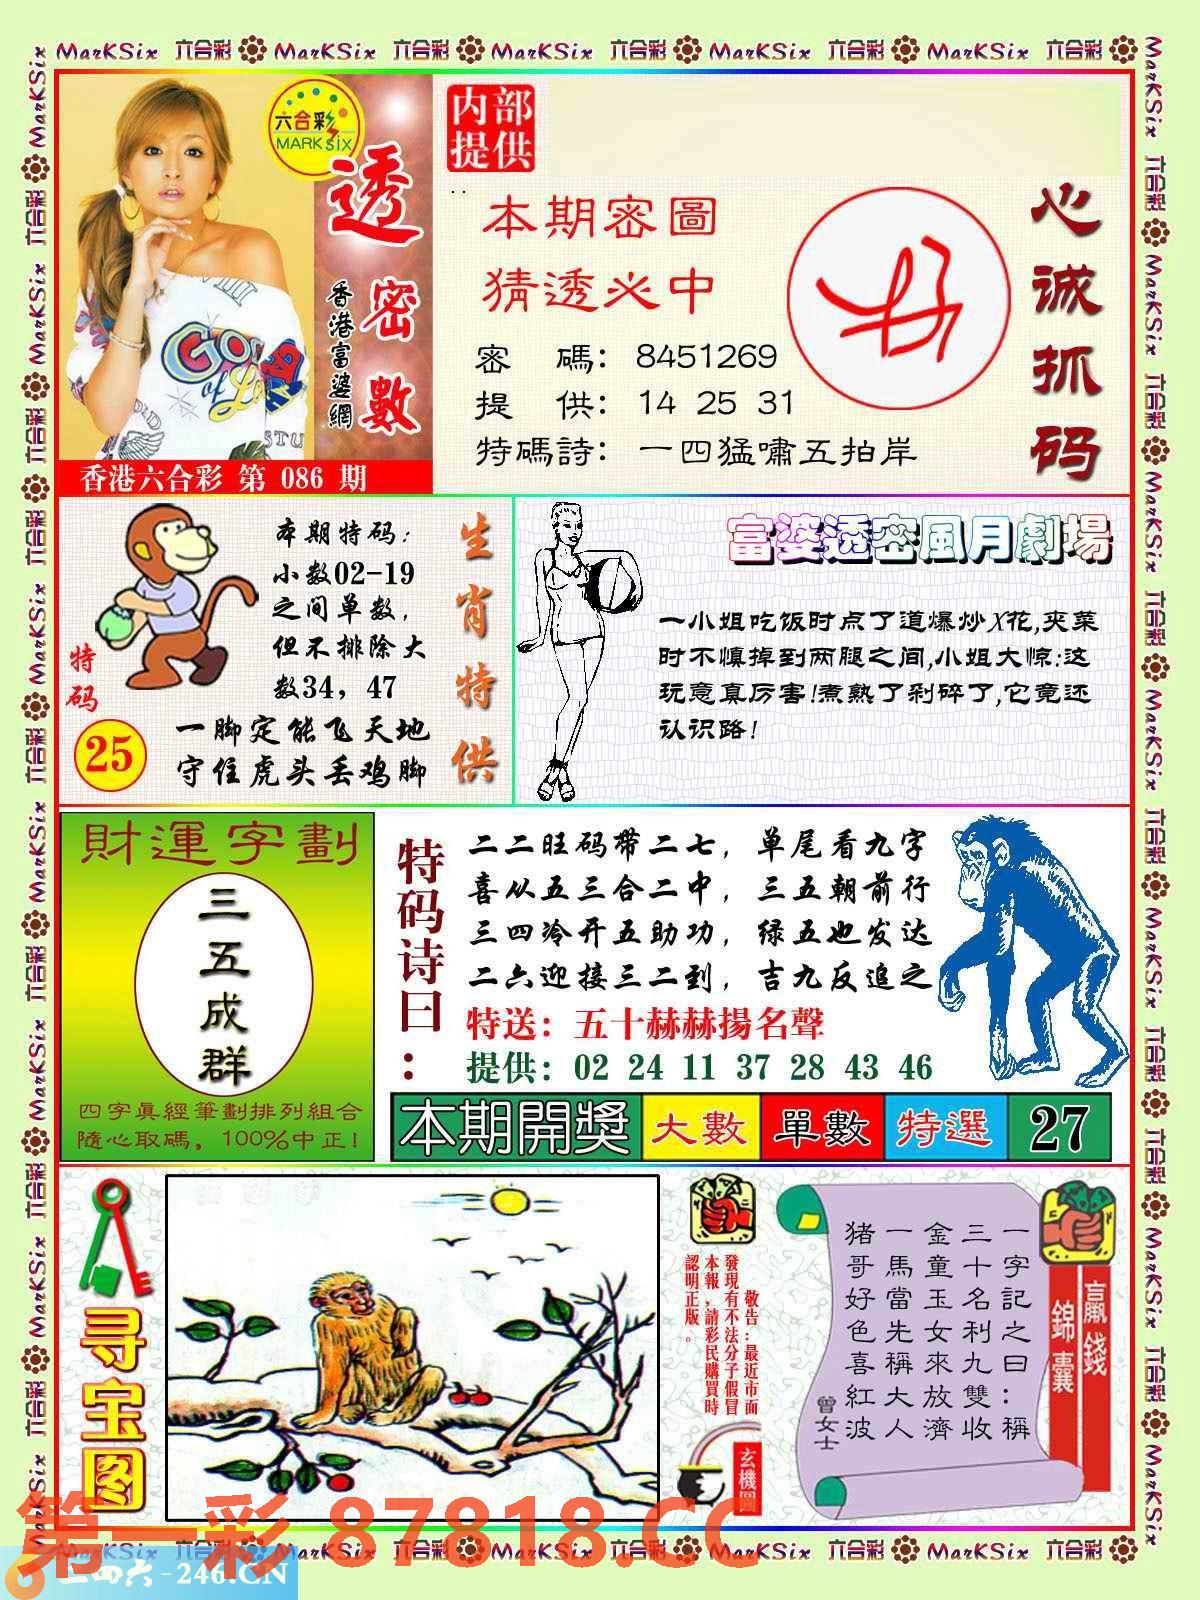 MarKSix 六合彩 MarKSix 六合彩 MarKSix 六合彩 MarKSix 六合彩 MarKSix 六合彩
六合彩
MARK SIX
透密數
香港富婆網
香港六合彩 第 086 期
内部
提供
本期密圖
猜透必中
密 碼: 8451269
提 供: 14 25 31
特碼詩: 一四猛嘯五拍岸
心诚抓码
本期特码:
小数02-19
之间单数,
但不排除大
数34, 47
特码
25
一脚定能飞天地
守住虎头丢鸡脚
生肖特供
富婆透密風月劇場
一小姐吃饭时点了道爆炒X花,夹菜
时不慎掉到两腿之间,小姐大惊:这
玩意真厉害!煮熟了剁碎了,它竟还
认识路!
財運字劃
三五成群
四字真經筆劃排列組合
隨心取碼, 100%中正!
特码诗曰:
二二旺码带二七, 单尾看九字
喜从五三合二中, 三五朝前行
三四冷开五助功, 绿五也发达
二六迎接三二到, 吉九反追之
特送: 五十赫赫揚名聲
提供: 02 24 11 37 28 43 46
本期開獎 大數 單數 特選 27
寻宝图
敬告:最近市面
發現有不法分子假冒
本報,請彩民購買時
認明正版。
玄機圖
一字記之曰:稱
三十名利九雙收
金童玉女來放濟
一馬當先稱大人
猪哥好色喜紅波
曾女士
贏錢
錦囊
第一彩 87818.CC
MarKSix 六合彩 MarKSix 六合彩 MarKSix 六合彩 MarKSix 六合彩
-246.CN